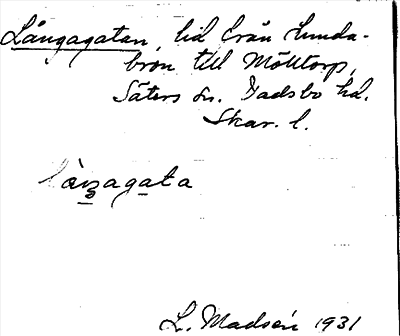 Långagatan, lid från Lunda-
bron till Mölltorp,
Säters sn. Vadsbo hd.
Skar. l.
làŋagata
L. Madsén 1931